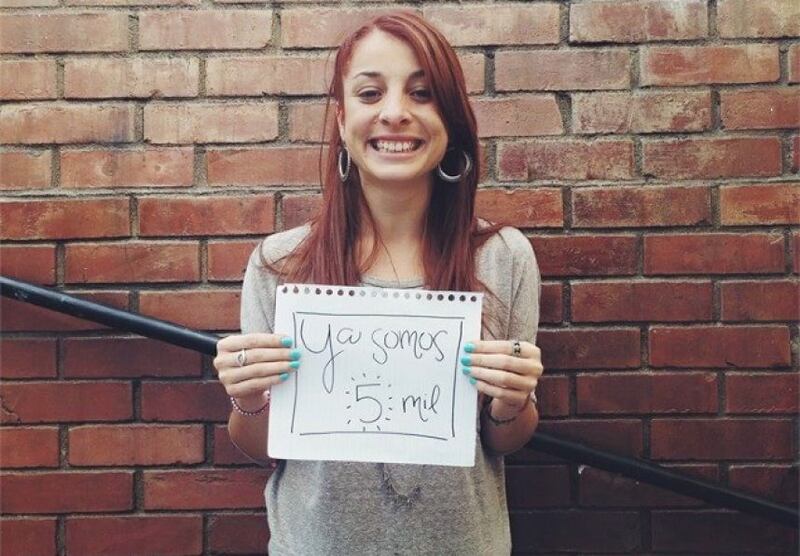 Ya somos
5 mil